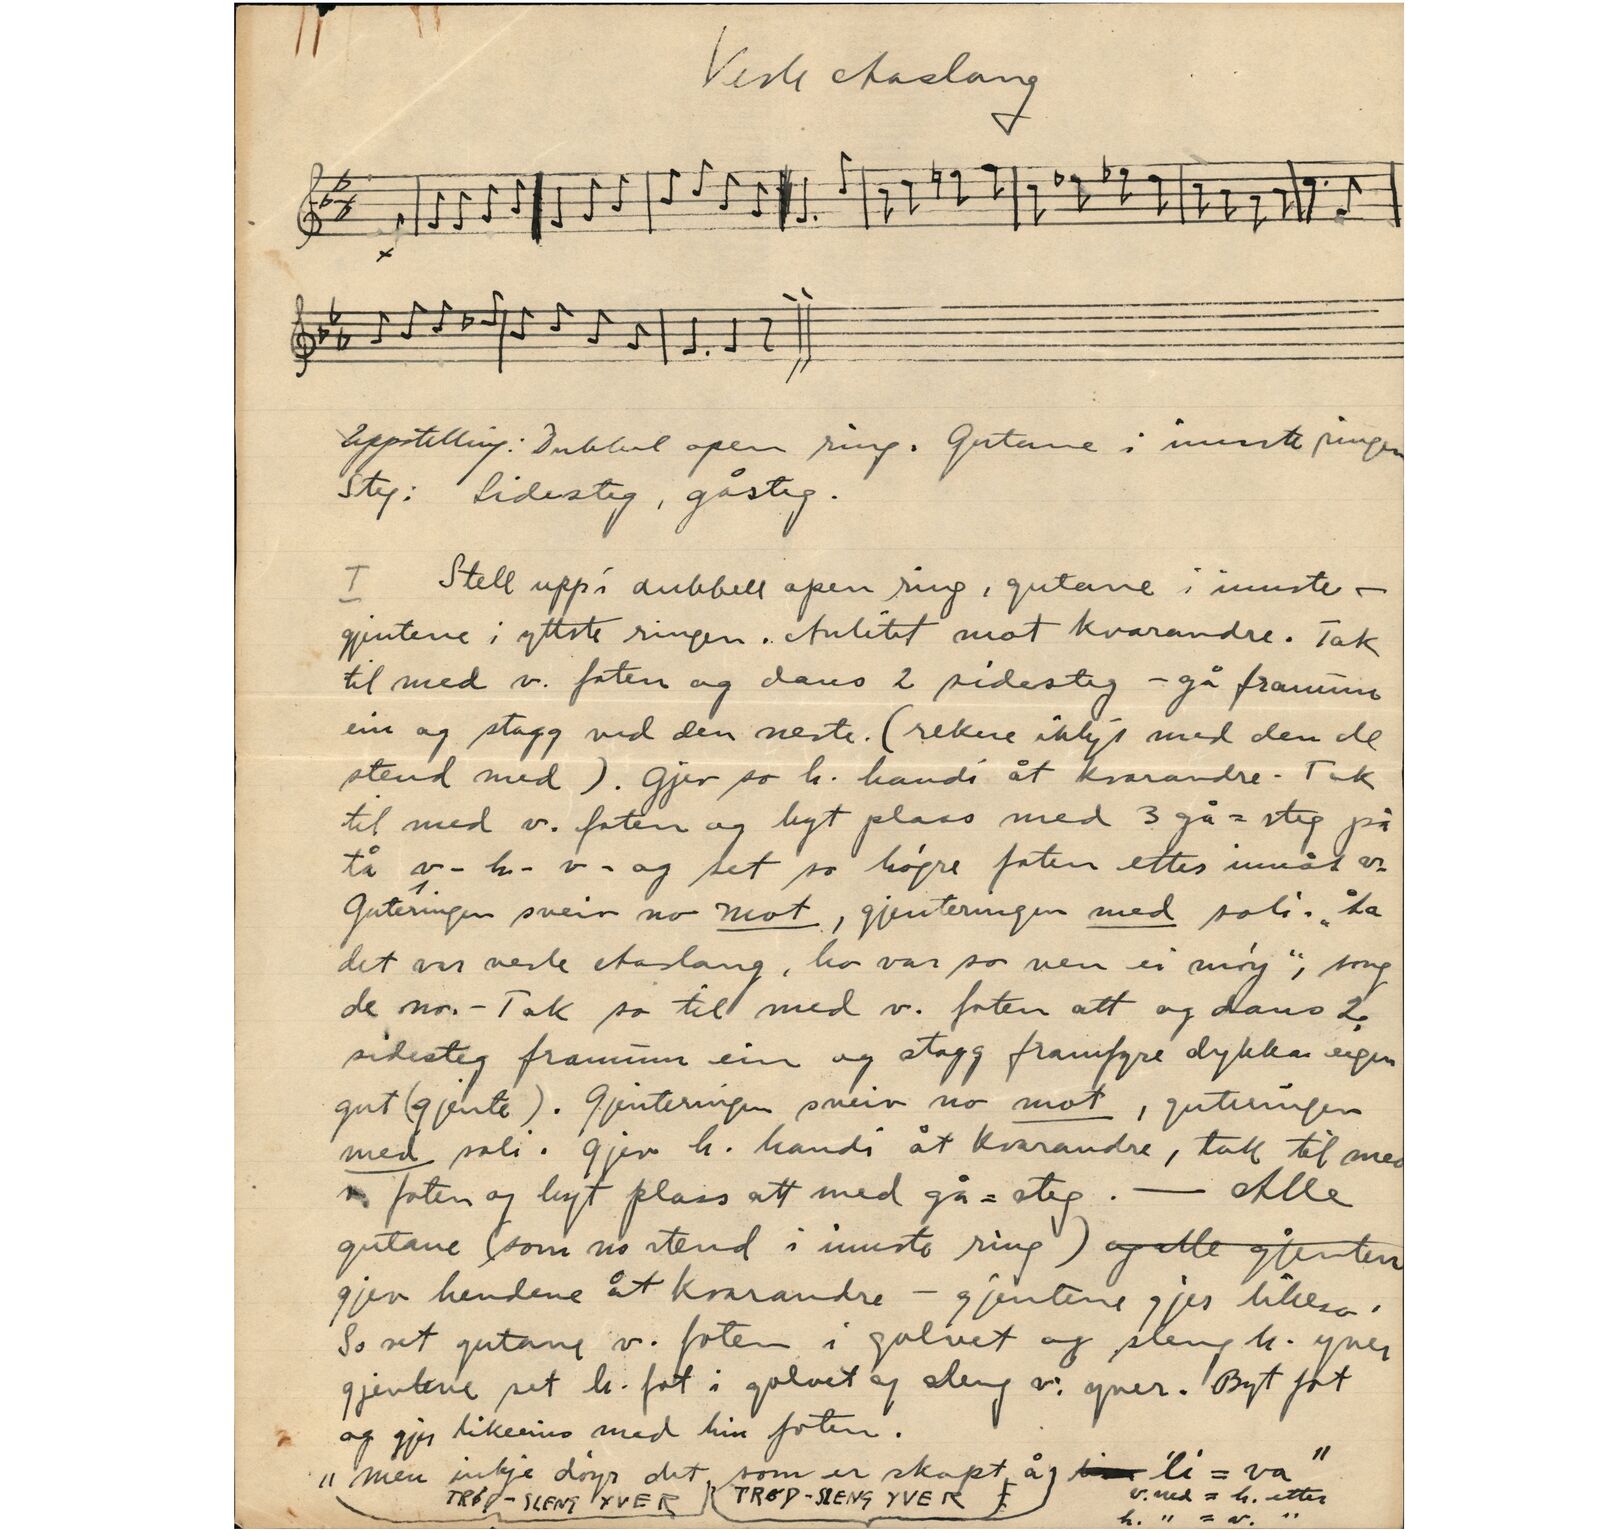 Vesle Aaslaug
Uppstelling: Dubbel open ring. Gutane i inste ringen
Steg: Sidesteg, gåsteg.
I Stell upp i dubbell open ring, gutane i inuste –
gjentene i yttste ringen. Anlitet mot kvarandre. Tak
til med v. foten og dans 2 sidesteg – gå framum
ein og stogg ved den neste. (rekne ikkje med den de
stend med). Gjev so h. handi åt kvarandre – Tak
til med v. foten og byt plass med 3 gå=steg på
tå v – h – v – og set so högre foten etter innåt v.
Guteringen sveiv no mot, gjenteringen med soli. „Ja
det var vesle Aaslaug, ho var so ven ei möy“, song
de no. – Tak so til med v. foten att og dans 2
sidesteg framum ein og stogg framfyre dykkar eigen
gut (gjente). Gjenteringen sveiv no mot, guteringen
med soli. Gjev h. handi åt kvarandre, tak til med
v. foten og byt plass att med gå=steg. — Alle
gutane (som no stend i inuste ring) og alle gjenten
gjev hendene åt kvarandre – gjentene gjer likeso.
So set gutane v. foten i golvet og sleng h. yver
gjentene set h. fot i golvet og sleng v. yver. Byt fot
og gjer likeeins med hin foten.
„men inkje döyr det, som er skapt å li = va“
TRØD-SLENG YVER TRØD-SLENG YVER v. ned = h. etter
h. " = v. "